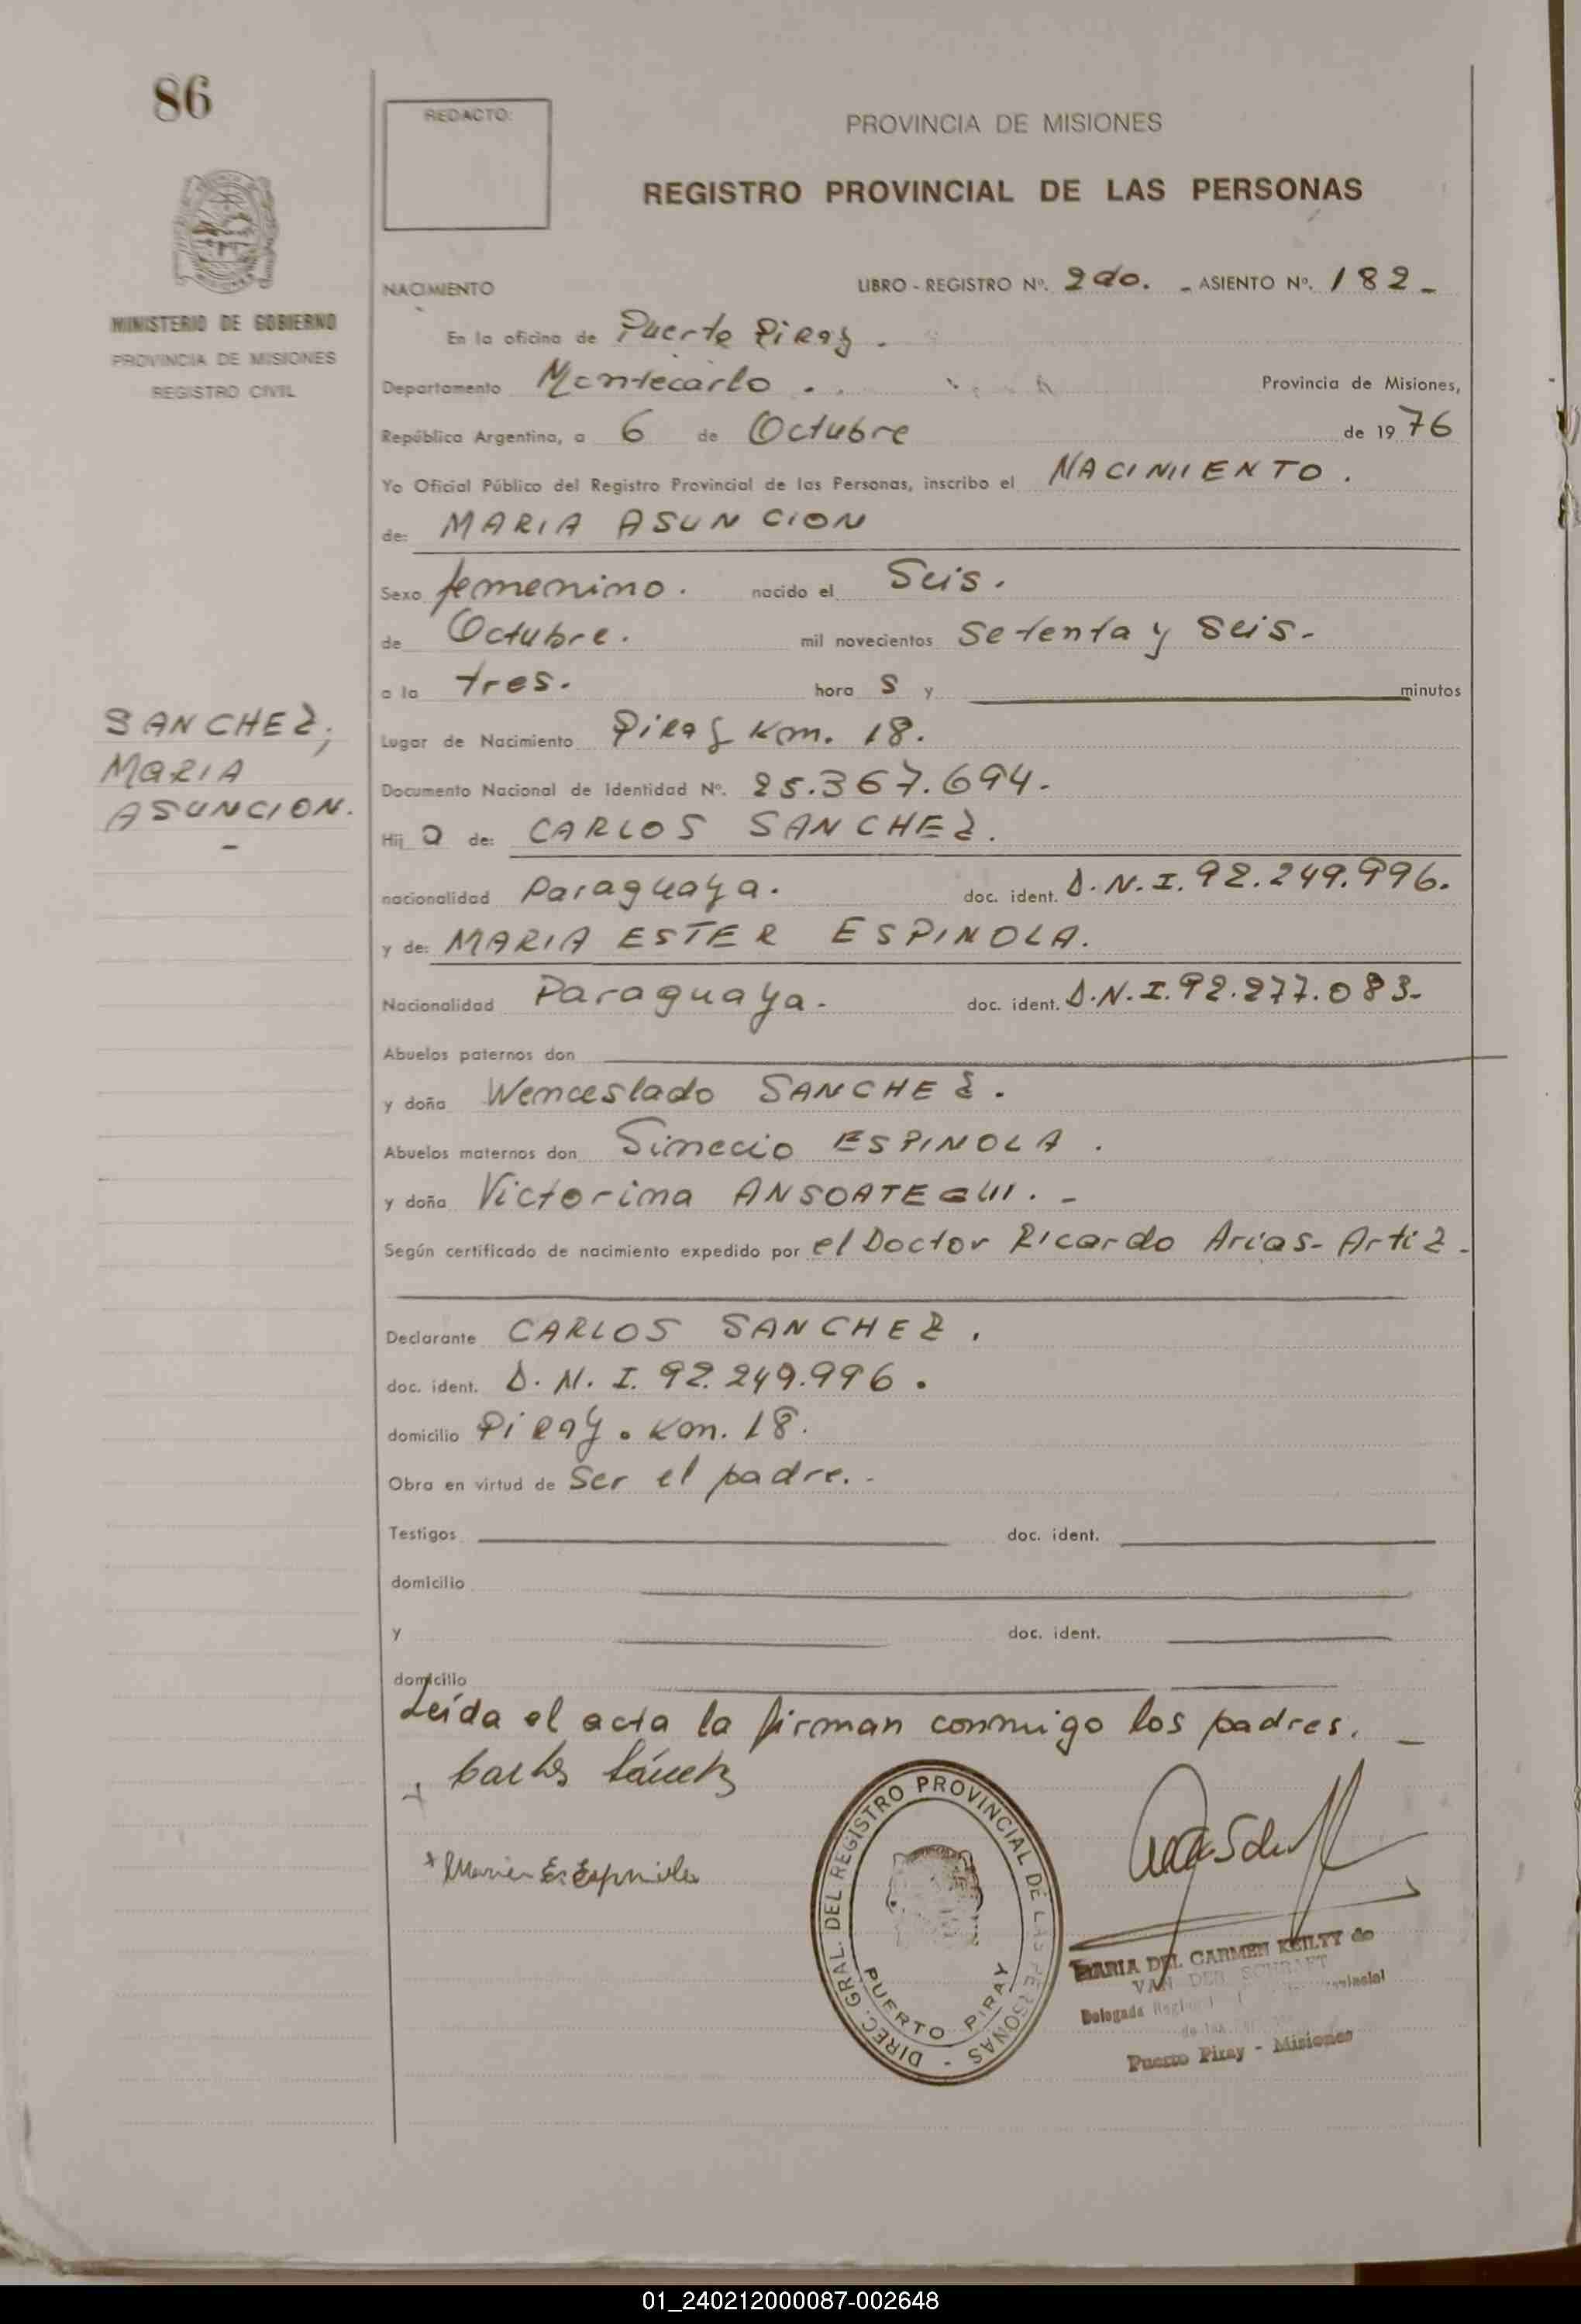 86
REDACTO:
PROVINCIA DE MISIONES
REGISTRO PROVINCIAL DE LAS PERSONAS
MINISTERIO DE GOBIERNO
PROVINCIA DE MISIONES
REGISTRO CIVIL
NACIMIENTO LIBRO - REGISTRO Nº. 2do. - ASIENTO Nº. 182 -
En la oficina de Puerto Piray .
Departamento Montecarlo . Provincia de Misiones,
República Argentina, a 6 de Octubre de 1976
Yo Oficial Público del Registro Provincial de las Personas, inscribo el NACIMIENTO .
de: MARIA ASUNCION
Sexo femenino. nacido el Seis.
de Octubre. mil novecientos Setenta y Seis.
a la tres. hora S y minutos
SANCHEZ;
MARIA
ASUNCION.
-
Lugar de Nacimiento Piray Km. 18.
Documento Nacional de Identidad Nº. 25.367.694.
Hij a de: CARLOS SANCHEZ.
nacionalidad Paraguaya. doc. ident. D.N.I. 92.249.996.
y de: MARIA ESTER ESPINOLA.
Nacionalidad Paraguaya. doc. ident. D.N.I. 92.277.083-
Abuelos paternos don
y doña Wenceslado SANCHEZ .
Abuelos maternos don Simecio ESPINOLA .
y doña Victorina ANSOATEGUI . -
Según certificado de nacimiento expedido por el Doctor Ricardo Arias- Artiz -
Declarante CARLOS SANCHEZ .
doc. ident. D. N. I. 92.249.996 .
domicilio Piray . Km. 18.
Obra en virtud de Ser el padre. -
Testigos doc. ident.
domicilio
y doc. ident.
domicilio
Leída el acta la firman conmigo los padres. -
+ Carlos Sánchez
+ Maria E. Espinola
DIREC. GRAL. DEL REGISTRO PROVINCIAL DE LAS PERSONAS -
PUERTO PIRAY
MARIA DEL CARMEN KEILTY de
VAN DER SCHRAFT
Delegada
Puerto Piray - Misiones
01_240212000087-002648